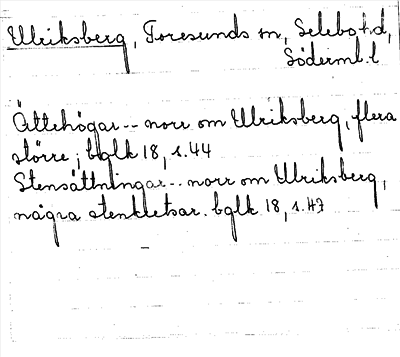 Ulriksberg, Toresunds sn, Selebo h.d,
Söderml. l
Ättehögar -- norr om Ulriksberg, flera
större; bglk 18, s. 44
Stensättningar -- norr om Ulriksberg,
några stenkretsar. bglk 18, s. 47